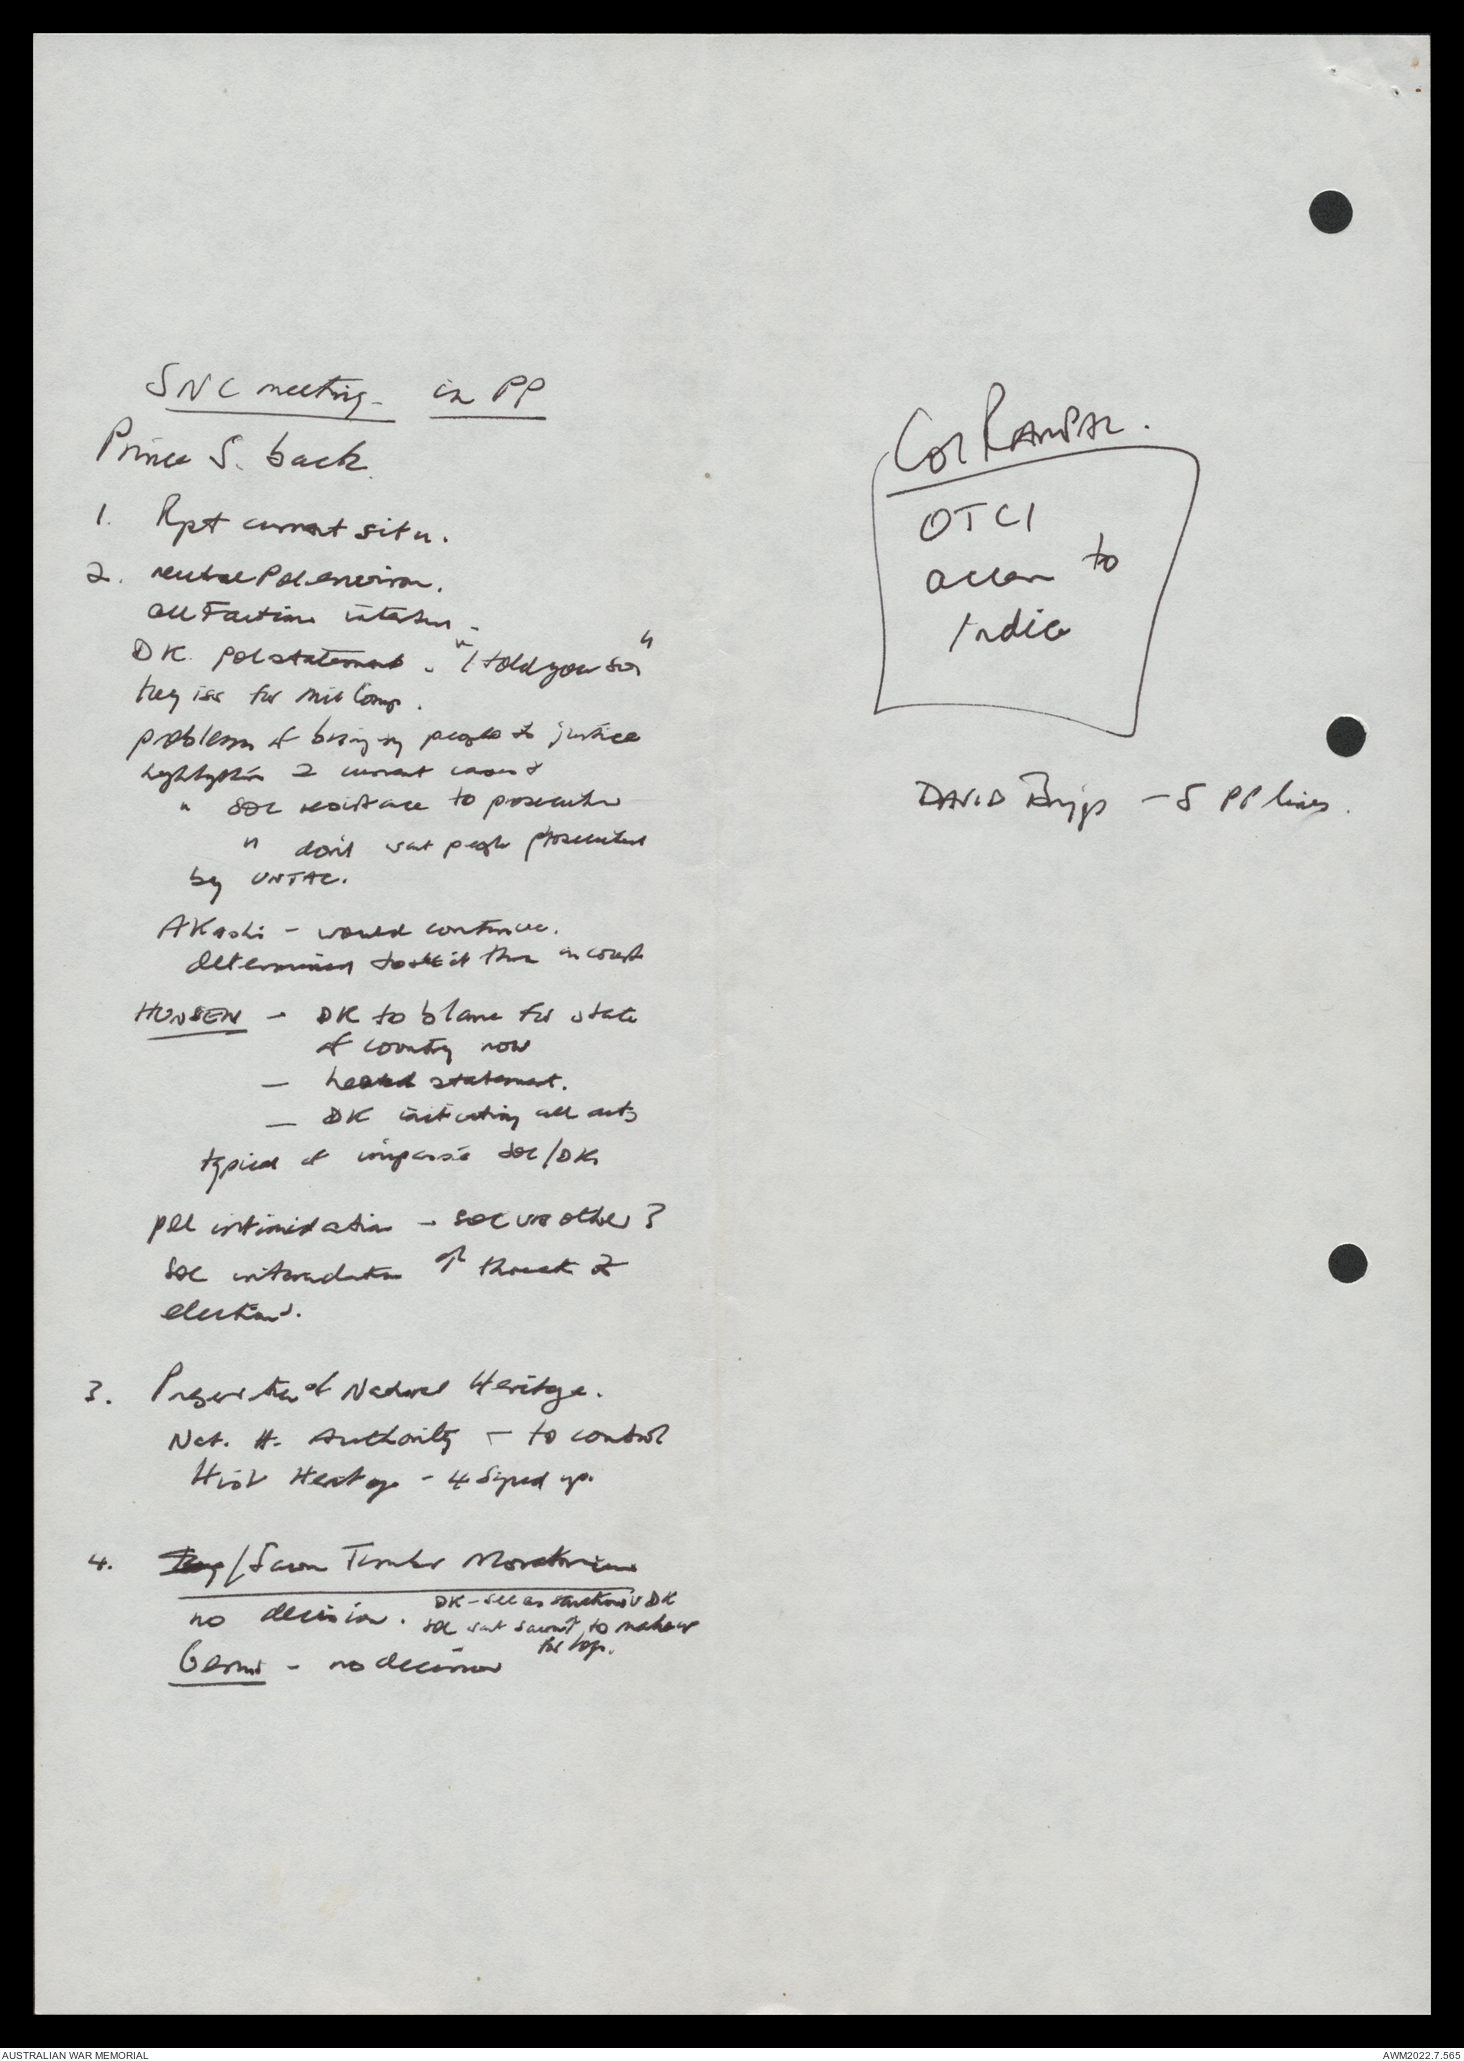 SNC meeting - in PP
Prince S. back.
1. Rpt current situ.
2. neutral Pol. environ.
all Factions
DK. pol statement. "I told you so"
key iss for Mil Comp.
problem of bringing people to justice
highlighting 2 current cases &
" SOC resistance to prosecution
" don't want people prosecuted
by UNTAC.
Akashi - would continue.
determined to in court
HUNSEN - DK to blame for state
of country now
- heated statement.
- DK all acts
typical of impasse SOC/DK
pol intimidation - SOC v's other 3
SOC intimidation of threat to
elections.
3. Preservation of National Heritage.
Nat. H. Authority - to control
Hist Heritage - 4 signed up.
4. /Sawn Timber Moratorium
no decision. DK - see as sanctions v DK
SOC want sawn't to make up
for logs.
Gems - no decision
Col RAMPAL.
OTCI
access to
India
DAVID Briggs - 5 PP lines.
AUSTRALIAN WAR MEMORIAL
AWM2022.7.565